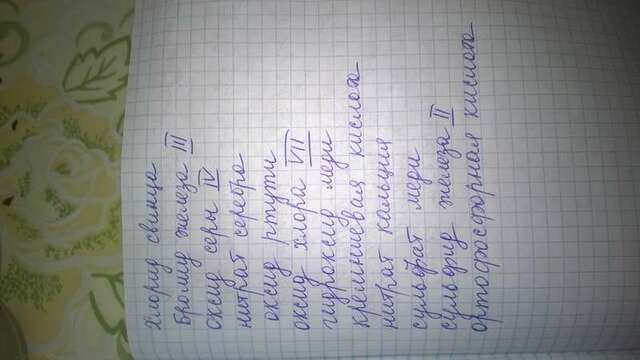 Хлорид свинца
Бромид железа III
оксид серы IV
нитрат серебра
оксид ртути
оксид хлора VII
гидроксид меди
кремниевая кислота
нитрат кальция
сульфат меди
сульфид железа II
ортофосфорная кислота